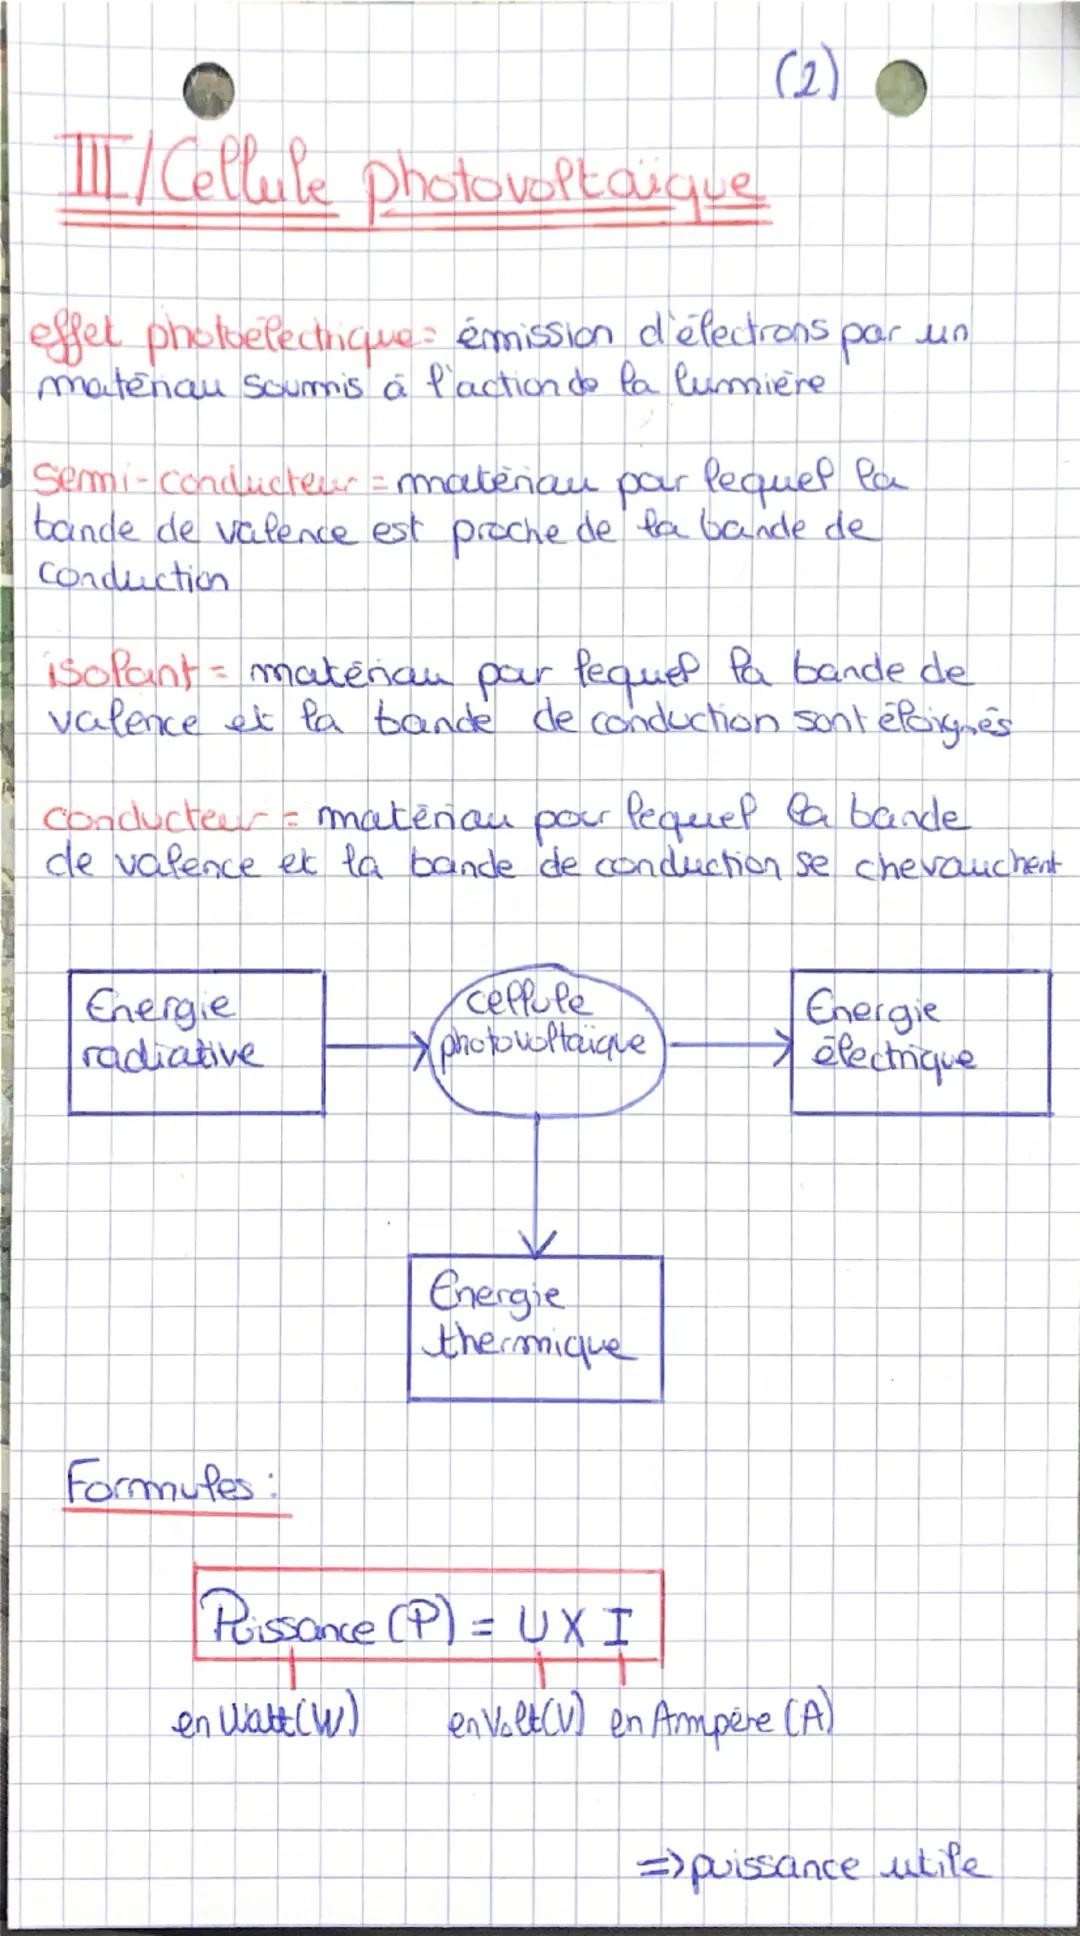 (2)
III/Cellule photovoltaïque
effet photoélectrique = émission d'électrons par un
matériau soumis à l'action de la lumière
Semi-conducteur = matériau par lequel la
bande de valence est proche de la bande de
conduction
isolant = matériau par lequel la bande de
valence et la bande de conduction sont éloignés
conducteur = matériau pour lequel la bande
de valence et la bande de conduction se chevauchent
Energie
radiative
cellule
photovoltaïque
Energie
électrique
Energie
thermique
Formules :
Puissance (P) = U X I
en Watt (W) en Volt (V) en Ampère (A)
=> puissance utile